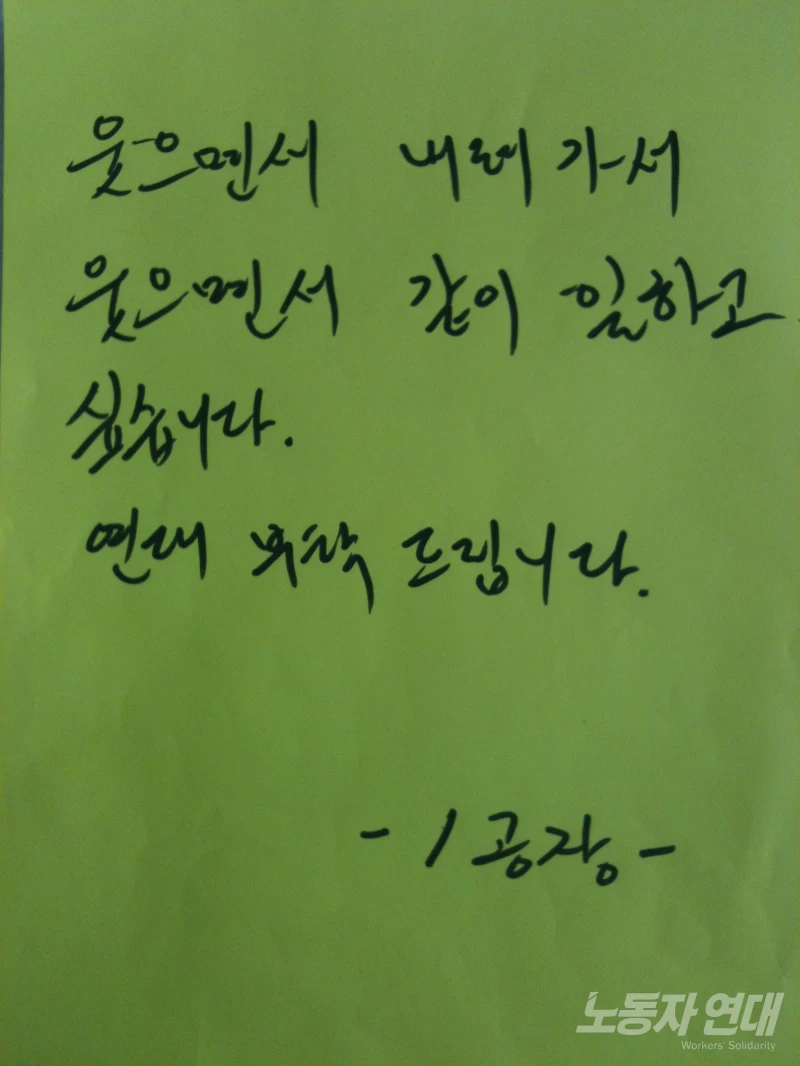 웃으면서 내려가서
웃으면서 같이 일하고
싶습니다.
연대 부탁 드립니다.
- 1 공장 -
노동자 연대
Workers' Solidarity